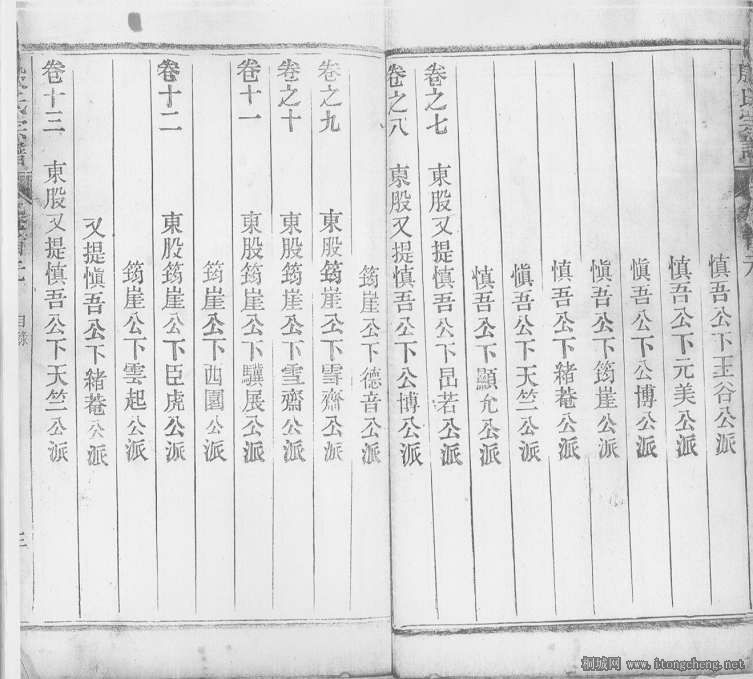 慎吾公下玉谷公派
慎吾公下元美公派
慎吾公下公博公派
慎吾公下筠崖公派
慎吾公下緒菴公派
慎吾公下天竺公派
慎吾公下顯允公派
卷之七 東股又提慎吾公下昆若公派
卷之八 東股又提慎吾公下公博公派
筠崖公下德音公派
卷之九 東股筠崖公下雪齋公派
卷之十 東股筠崖公下雪齋公派
卷十一 東股筠崖公下驥展公派
筠崖公下西園公派
卷十二 東股筠崖公下臣虎公派
筠崖公下雲起公派
又提慎吾公下緒菴公派
卷十三 東股又提慎吾公下天竺公派
目錄
三
桐城网 www.itongcheng.net